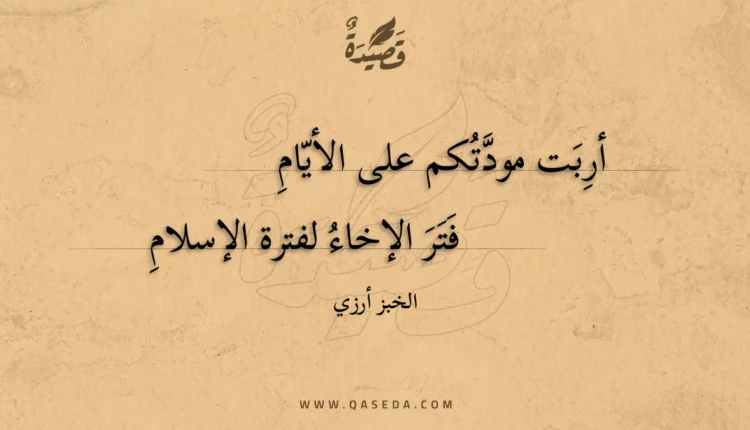 قَصِيْدَةٌ
أرِبَت مودَّتُكم على الأيّامِ
فَتَرَ الإخاءُ لفترة الإسلامِ
الخبز أرزي
WWW.QASEDA.COM